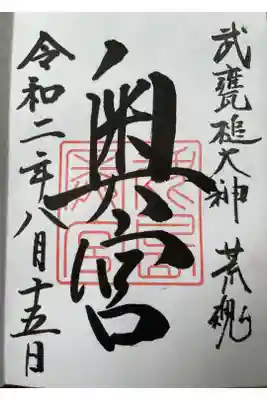 武甕槌大神 荒魂
奥宮
令和二年八月十五日